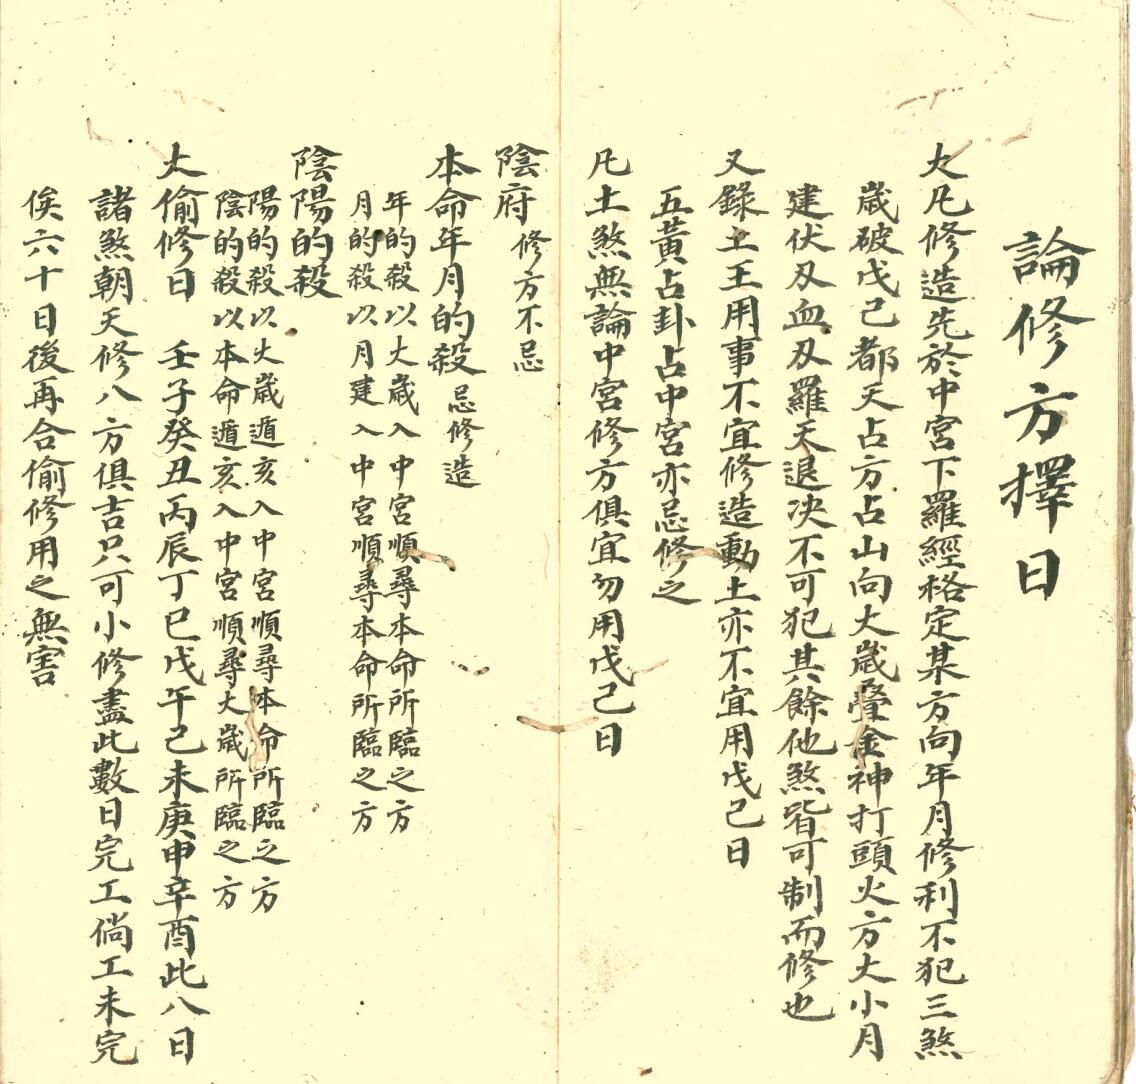 論修方擇日
大凡修造先於中宮下羅經格定某方向年月修利不犯三煞
歲破戊己都天占方占山向大歲疊金神打頭火方大小月
建伏刃血刃羅天退决不可犯其餘他煞皆可制而修也
又錄土王用事不宜修造動土亦不宜用戊己日
五黃占卦占中宮亦忌修之
凡土煞無論中宮修方俱宜勿用戊己日
陰府 修方不忌
本命年月的殺 忌修造
年的殺以大歲入中宮順尋本命所臨之方
月的殺以月建入中宮順尋本命所臨之方
陰陽的殺
陽的殺以大歲遁亥入中宮順尋本命所臨之方
陰的殺以本命遁亥入中宮順尋大歲所臨之方
大偷修日 壬子癸丑丙辰丁巳戊午己未庚申辛酉此八日
諸煞朝天修八方俱吉只可小修盡此數日完工倘工未完
俟六十日後再合偷修用之無害